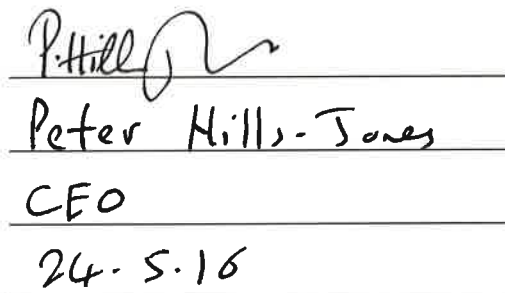 P.Hill
Peter Hills-Jones
CEO
24.5.16